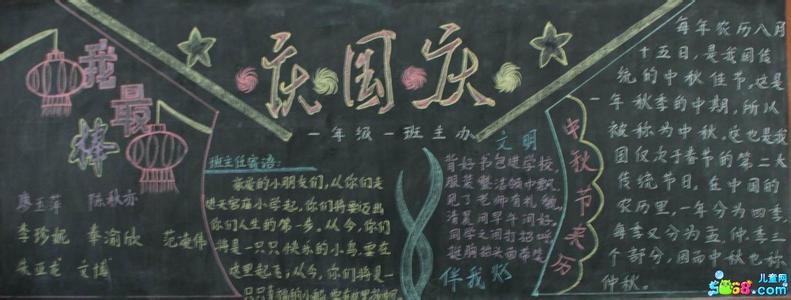 我最棒
廖玉萍 陈秋亦
李珍妮 秦渝欣 范凌伟
朱亚龙 文博
庆国庆
一年级一班主办
班主任寄语:
亲爱的小朋友们,从你们走
进天宫殿小学起,你们将要迈出
你们人生的第一步。从今,你们
将是一只只快乐的小鸟,要在
这里起飞;从今,你们将是一
文明
背好书包进学校,
服装整洁领巾飘,
见了老师有礼貌,
清晨问早午问好,
同学之间打招呼,
挺胸抬头面带笑
伴我行
中秋节来历
每年农历八月
十五日,是我国传
统的中秋佳节,这是
一年秋季的中期,所以
被称为中秋。这也是我
国仅次于春节的第二大
传统节日。在中国的
农历里,一年分为四季,
每季又分为孟、仲、季三
个部分,因而中秋也称
仲秋。
儿童网
5068.com